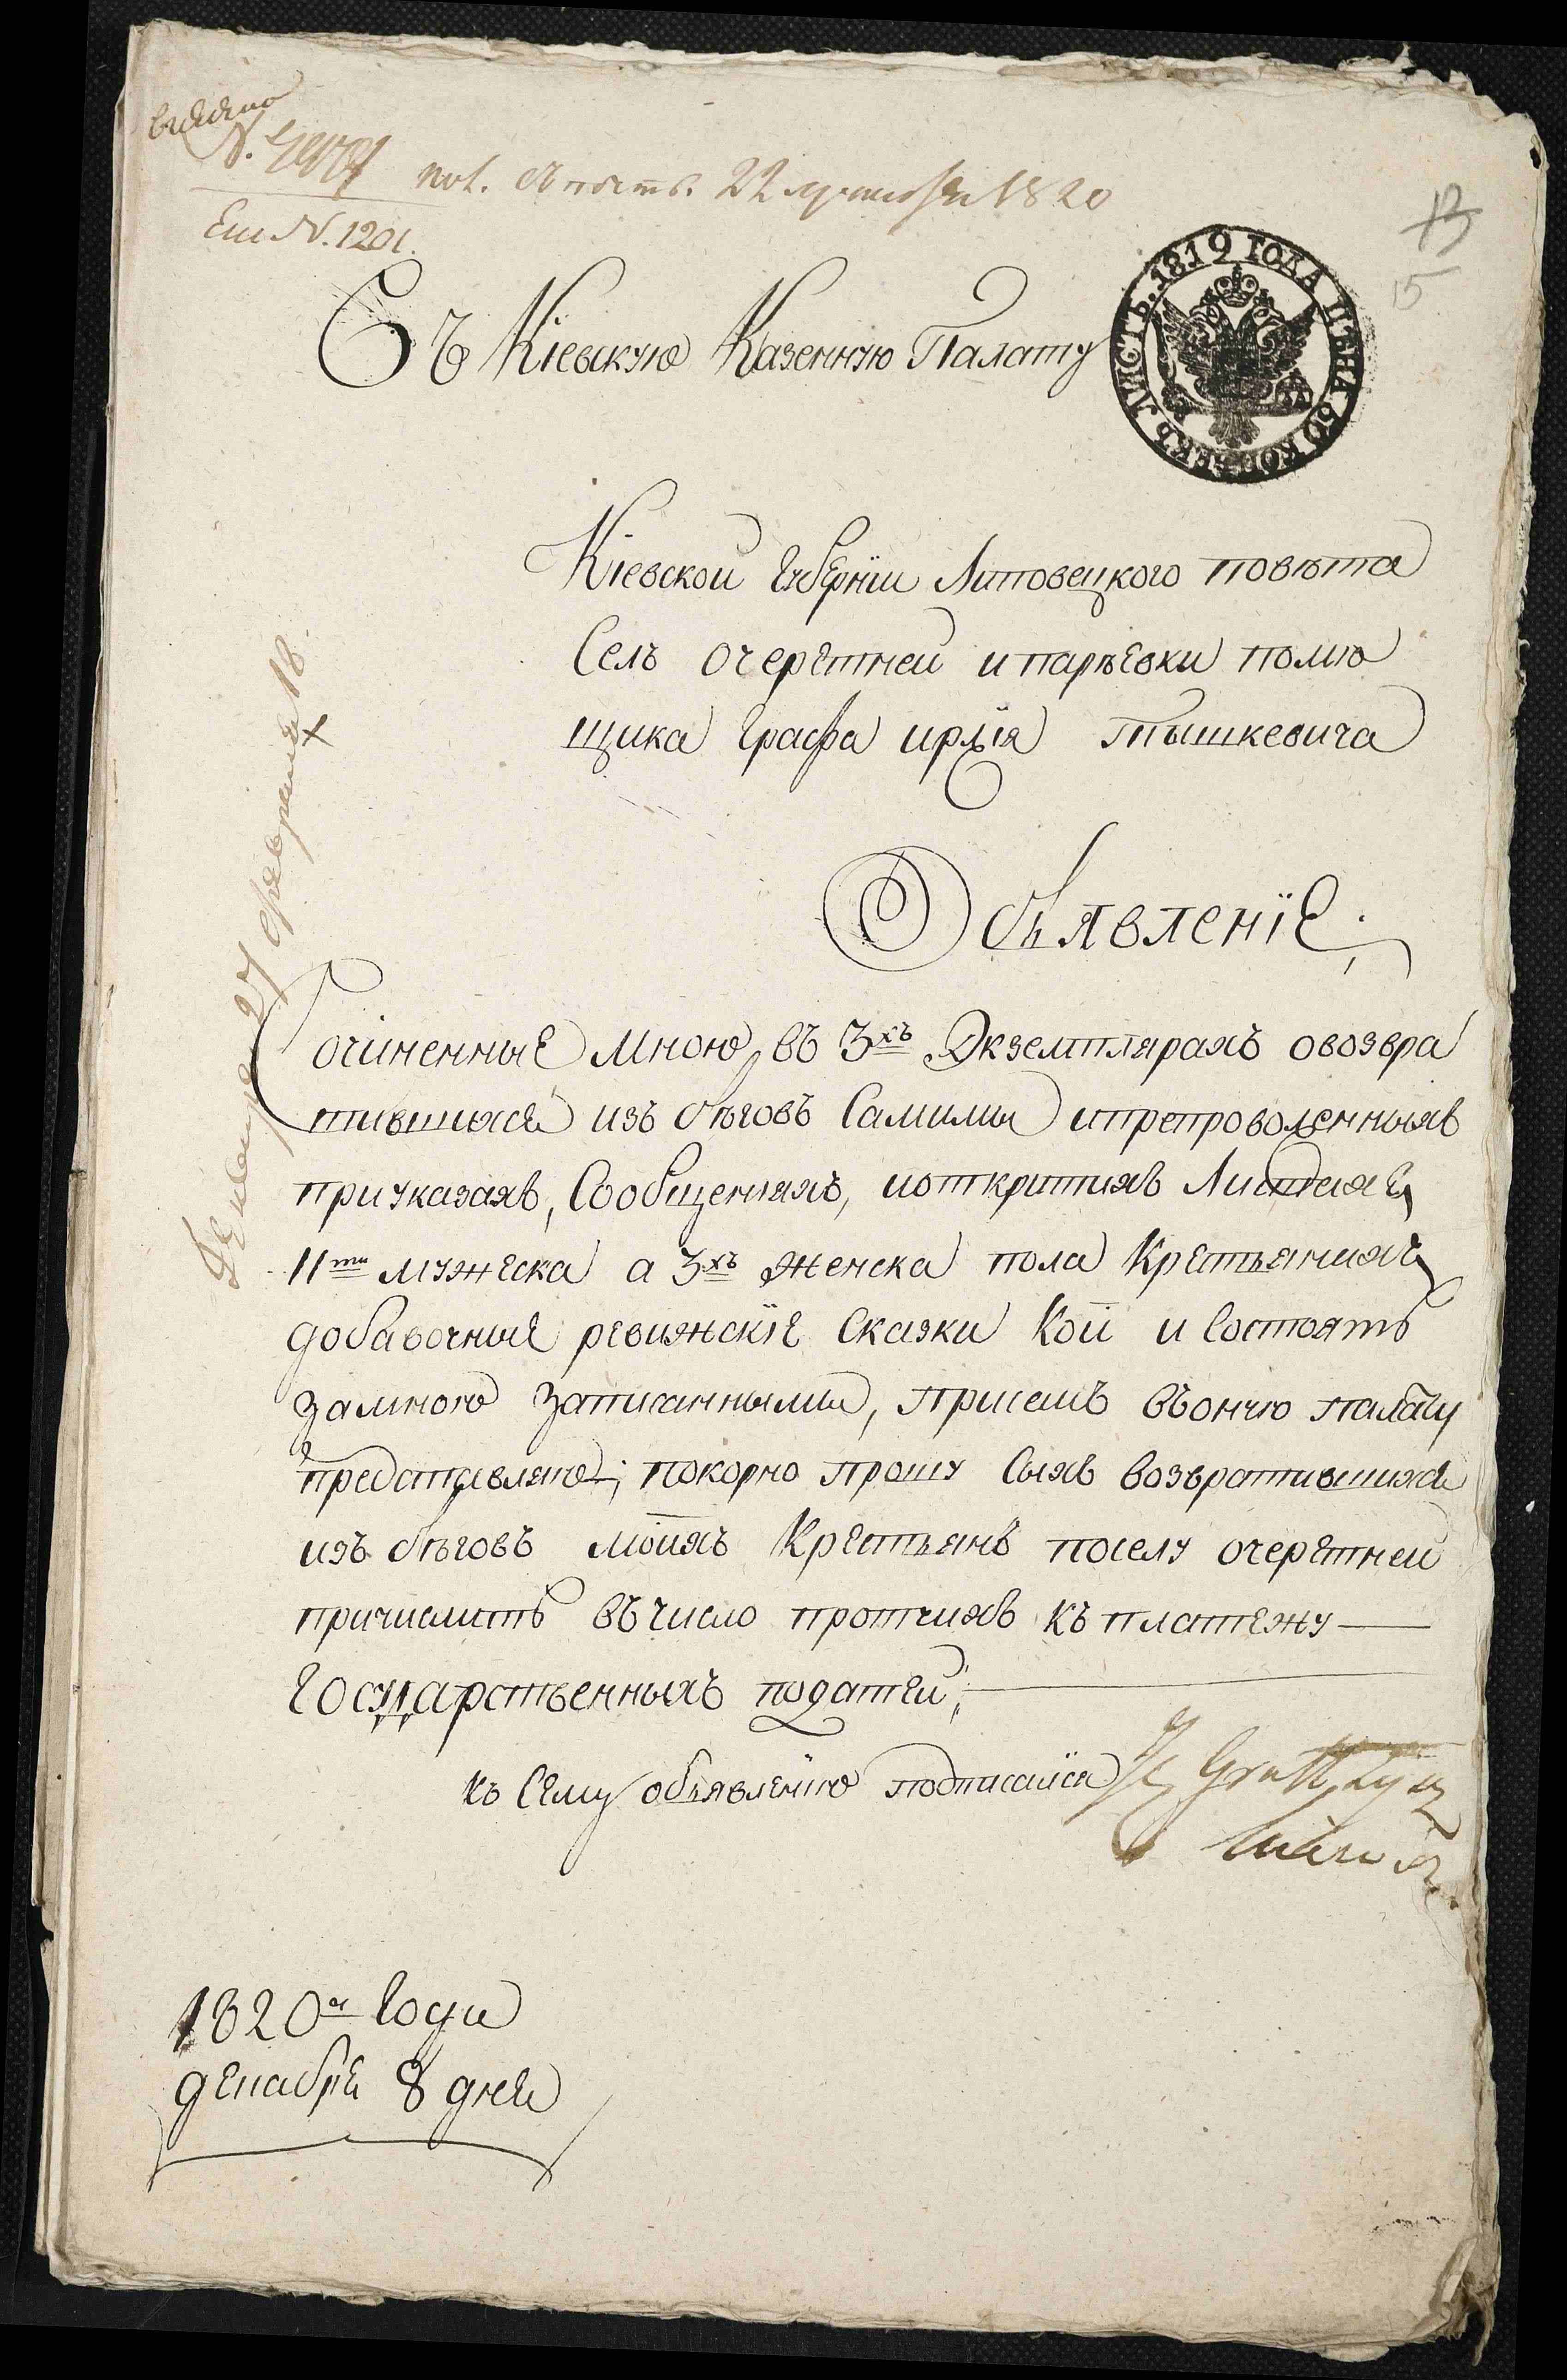 Ещ N. 1201.
пол. 22 1820
13
15
1819 ГОДА ЦѢНА 50 КОПѢЕКЪ ЛИСТЪ.
Въ Кіевскую Казенную Палату
Кіевской Губернїи Липовецкого повѣта
Селъ очеретней и паръевки помѣ
щика Графа Тышкевича
Объявленїе;
Сочиненные мною въ 3хъ Экземплярахъ овозвра
тившихся изъ бѣговъ Самими ипрепровожденныхъ
приуказахъ, Сообщенияхъ, иоткритихъ Листахъ
11ти мужеска а 3хъ женска пола Крестьянихъ
добавочные ревижскїе Сказки Кои и Состоятъ
замною записанными, присемъ въоную палату
представляю; покорно прошу Сихъ возвратившихся
изъ бѣговъ моихъ Крестьянъ поселу очеретней
причислить въчисло протчихъ къ платежу —
Государственныхъ податей;
къ Сему объявленїю подписался
1820го Года
декабря 8 дня
27 февраля 18.